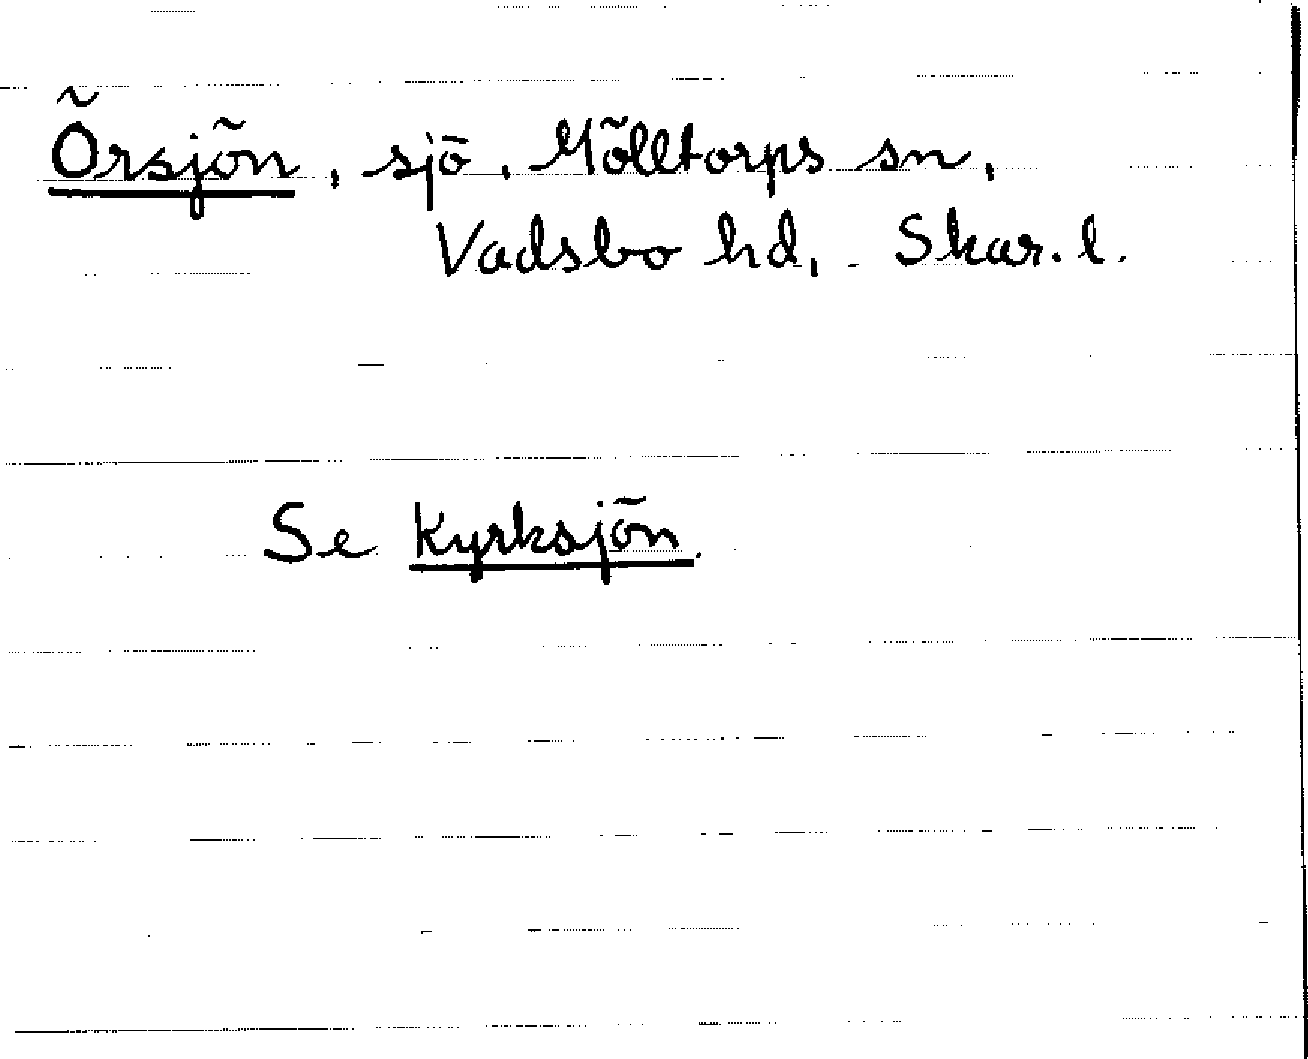 Örsjön, sjö, Mölltorps sn,
Vadsbo hd, Skar. l.
Se Kyrksjön.